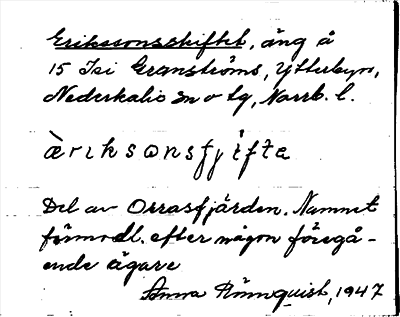 Erikssonsskiftet, äng å
15 Isi Granströms, Ytterbyn,
Nederkalix sn o tg, Norrb. l.
ærıksɷnsfjìfta
Del av Orrasfjärden. Namnet
förmodl. efter någon föregå-
ende ägare
Anna Rönnquist, 1947